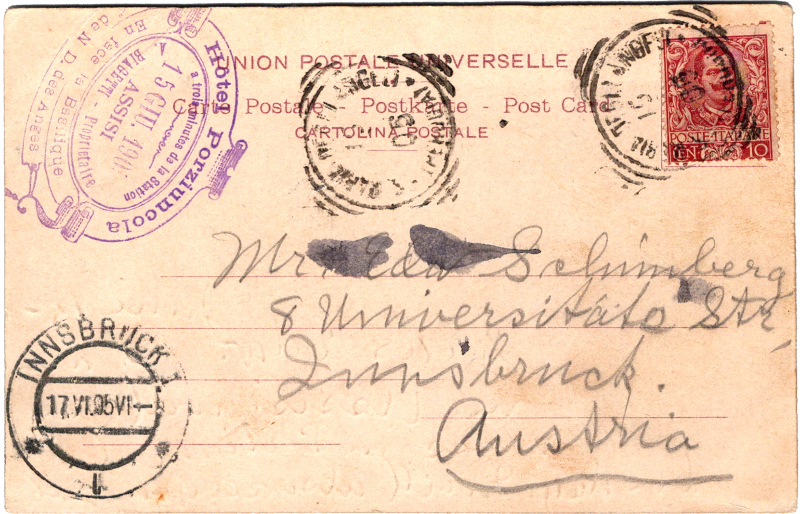 Hôtel Porziuncola
à trois minutes de la Station
15 GIU. 190
ASSISI
BIAGETTI - Propriétaire
En face de la Basilique
de N. D. des Anges
UNION POSTALE UNIVERSELLE
Carte Postale - Postkarte - Post Card
CARTOLINA POSTALE
POSTE ITALIANE
CENTESIMI 10
Mr. Eda Schimberg
8 Universitäts Str.
Innsbruck.
Austria
INNSBRUCK 1
17.VI.05 VI
* 1 *